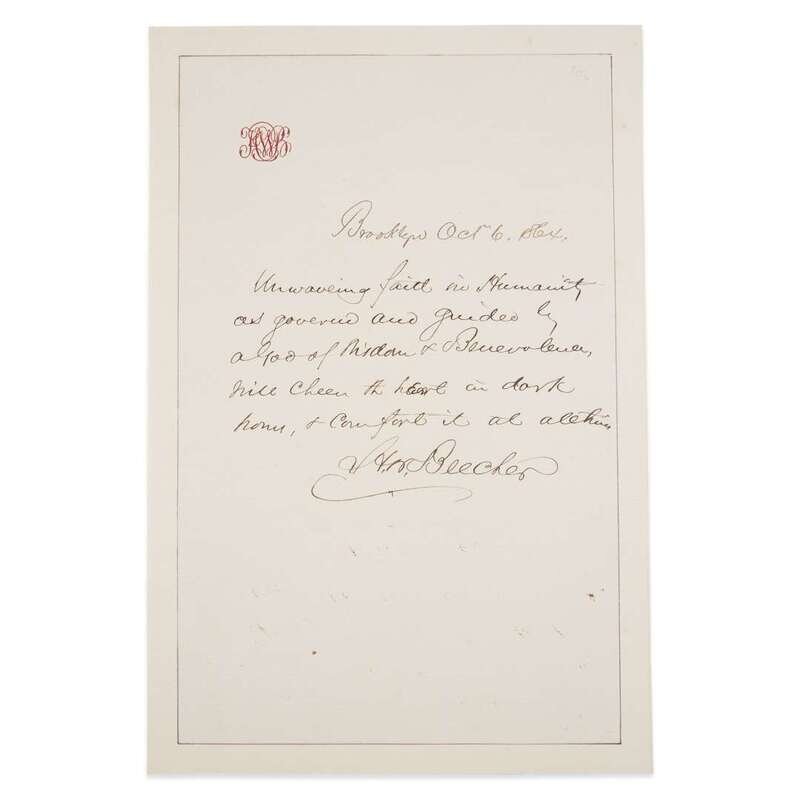 HWB
Brooklyn Oct 6. 1864.
Unwavering faith in Humanity
as governed and guided by
a God of Wisdom & Benevolence,
will cheer the heart in dark
hours, & comfort it at all times
H. W. Beecher